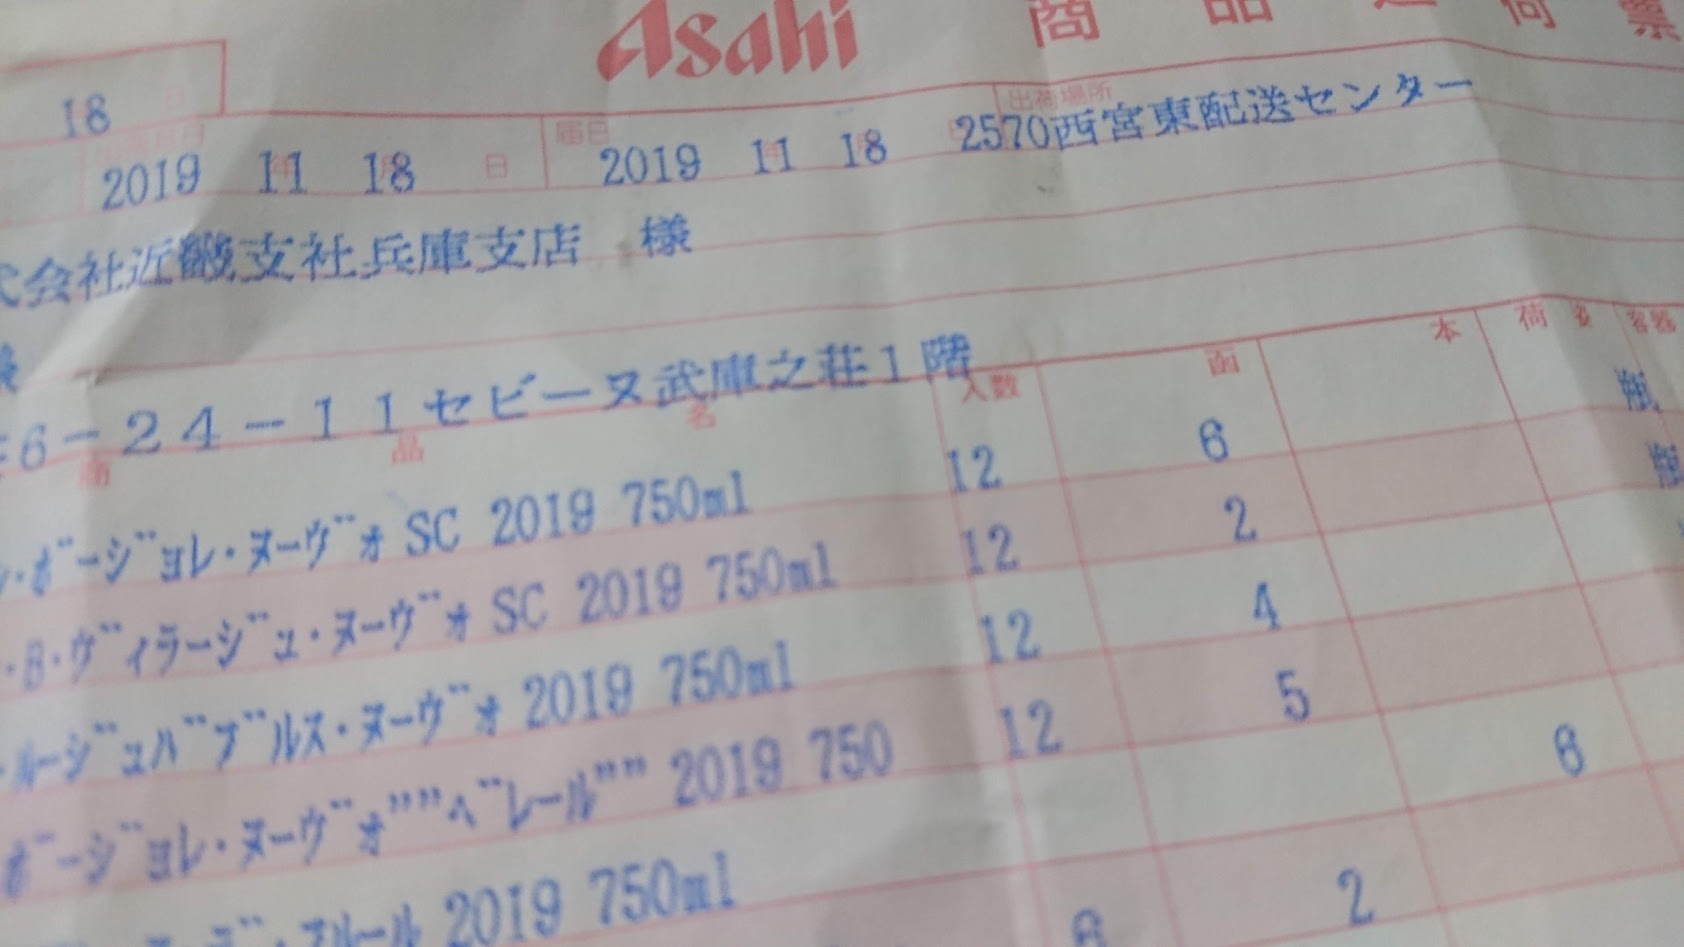 Asahi 商品送荷票
18 日
出荷場所
届日
2019 11 18 日 2019 11 18 2570西宮東配送センター
会社近畿支社兵庫支店 様
6-24-11セビーヌ武庫之荘1階
商品名 入数 函 本 荷姿 容器
・ボージョレ・ヌーヴォ SC 2019 750ml 12 6 瓶
・B・ヴィラージュ・ヌーヴォ SC 2019 750ml 12 2 瓶
・ルージュバブルス・ヌーヴォ 2019 750ml 12 4
ボージョレ・ヌーヴォ""ペレール"" 2019 750 12 5
6
2019 750ml 6 2